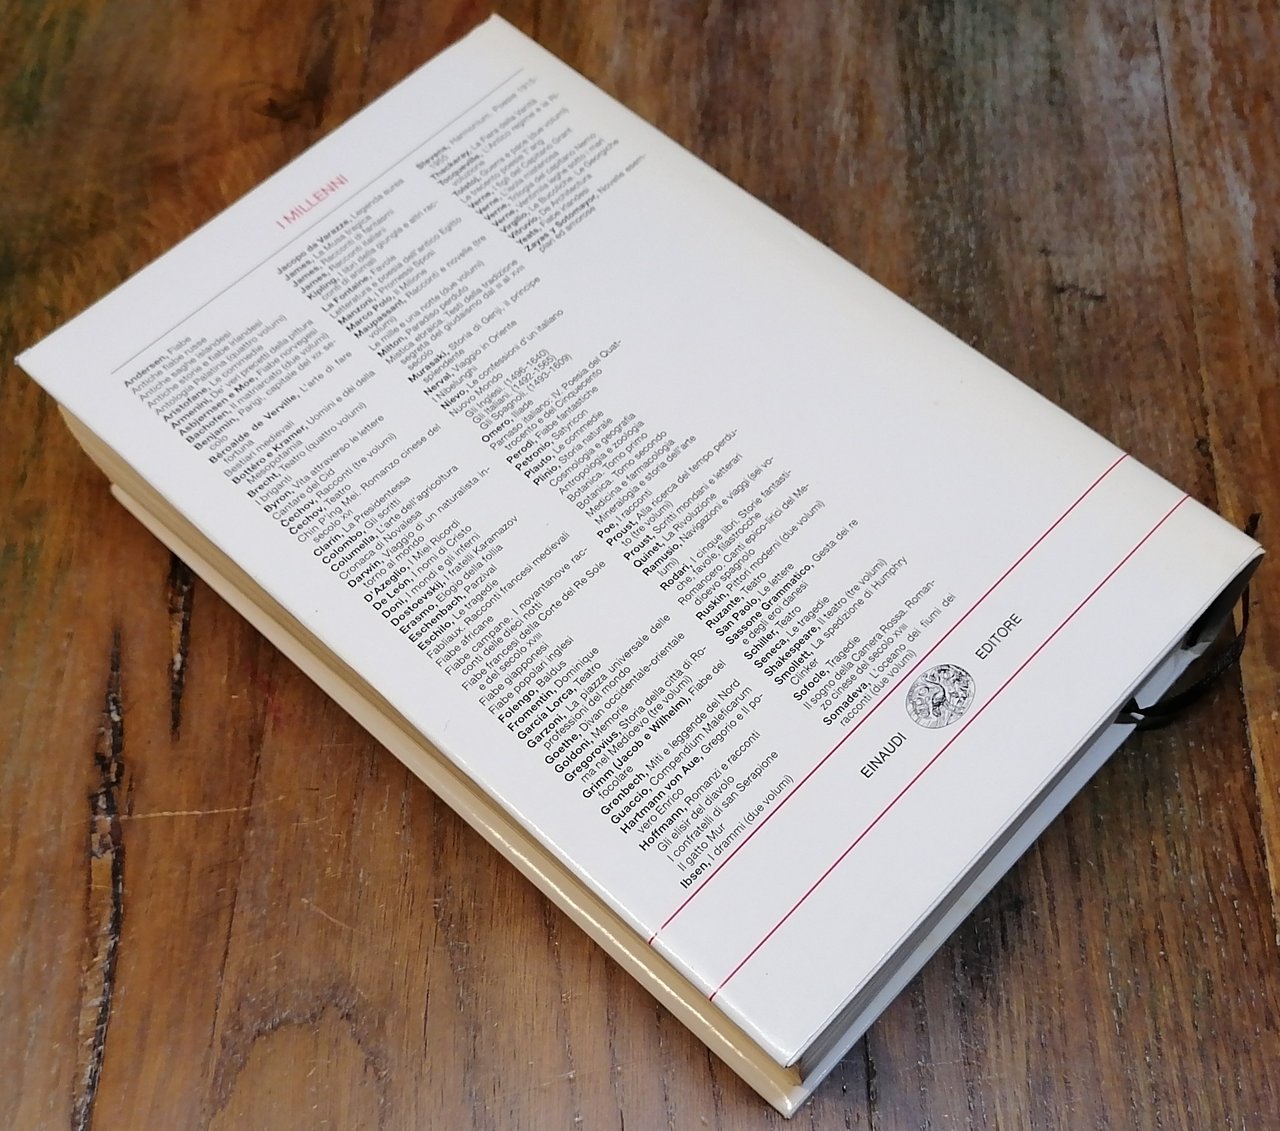 I MILLENNI
Andersen, Fiabe
Antiche fiabe russe
Antiche saghe islandesi
Antiche storie e fiabe irlandesi
Antologia Palatina (quattro volumi)
Aristofane, Le commedie
Armenini, De' veri precetti della pittura
Asbjørnsen e Moe, Fiabe norvegesi
Bachofen, Il matriarcato (due volumi)
Benjamin, Parigi, capitale del XIX se-
colo
Béroalde de Verville, L'arte di fare
fortuna
Bestiari medievali
Bottéro e Kramer, Uomini e dèi della
Mesopotamia
Brecht, Teatro (quattro volumi)
I briganti
Byron, Vita attraverso le lettere
Cantare del Cid
Čechov, Racconti (tre volumi)
Čechov, Teatro
Chin P'ing Mei. Romanzo cinese del
secolo XVI
Clarín, La Presidentessa
Colombo, Gli scritti
Columella, L'arte dell'agricoltura
Cronaca di Novalesa
Darwin, Viaggio di un naturalista in-
torno al mondo
D'Azeglio, I Miei Ricordi
De León, I nomi di Cristo
Doni, I mondi e gli inferni
Dostoevskij, I fratelli Karamazov
Erasmo, Elogio della follia
Eschenbach, Parzival
Eschilo, Le tragedie
Fabliaux. Racconti francesi medievali
Fiabe africane
Fiabe campane. I novantanove rac-
conti delle dieci notti
Fiabe francesi della Corte del Re Sole
e del secolo XVIII
Fiabe giapponesi
Fiabe popolari inglesi
Folengo, Baldus
Fromentin, Dominique
García Lorca, Teatro
Garzoni, La piazza universale delle
professioni del mondo
Goethe, Divan occidentale-orientale
Goldoni, Memorie
Gregorovius, Storia della città di Ro-
ma nel Medioevo (tre volumi)
Grimm (Jacob e Wilhelm), Fiabe del
focolare
Gronbech, Miti e leggende del Nord
Guaccio, Compendium Maleficarum
Hartmann von Aue, Gregorio e Il po-
vero Enrico
Hoffmann, Romanzi e racconti
Gli elisir del diavolo
I confratelli di san Serapione
Il gatto Mur
Ibsen, I drammi (due volumi)
Jacopo da Varazze, Legenda aurea
James, La Musa tragica
James, Racconti di fantasmi
James, Racconti italiani
Kipling, I libri della giungla e altri rac-
conti di animali
La Fontaine, Favole
Letteratura e poesia dell'antico Egitto
Manzoni, I Promessi Sposi
Marco Polo, Il Milione
Maupassant, Racconti e novelle (tre
volumi)
Le mille e una notte (due volumi)
Milton, Paradiso perduto
Mistica ebraica. Testi della tradizione
segreta del giudaismo dal III al XVIII
secolo
Murasaki, Storia di Genji, il principe
splendente
Nerval, Viaggio in Oriente
I Nibelunghi
Nievo, Le confessioni d'un italiano
Nuovo Mondo
Gli Inglesi. (1496-1640)
Gli Italiani. (1492-1565)
Gli Spagnoli. (1492-1609)
Omero, Iliade
Parnaso italiano: IV. Poesia del Quat-
trocento e del Cinquecento
Perodi, Fiabe fantastiche
Petronio, Satyricon
Plauto, Le commedie
Plinio, Storia naturale
Cosmologia e geografia
Antropologia e zoologia
Botanica. Tomo primo
Botanica. Tomo secondo
Medicina e farmacologia
Mineralogia e storia dell'arte
Poe, I racconti
Proust, Alla ricerca del tempo perdu-
to (tre volumi)
Proust, Scritti mondani e letterari
Quinet, La Rivoluzione
Ramusio, Navigazioni e viaggi (sei vo-
lumi)
Rodari, I cinque libri. Storie fantasti-
che, favole, filastrocche
Romancero. Canti epico-lirici del Me-
dioevo spagnolo
Ruskin, Pittori moderni (due volumi)
Ruzante, Teatro
San Paolo, Le lettere
Sassone Grammatico, Gesta dei re
e degli eroi danesi
Schiller, Teatro
Seneca, Le tragedie
Shakespeare, Il teatro (tre volumi)
Smollett, La spedizione di Humphry
Clinker
Sofocle, Tragedie
Il sogno della Camera Rossa. Roman-
zo cinese del secolo XVIII
Somadeva, L'oceano dei fiumi dei
racconti (due volumi)
Stevens, Harmonium. Poesie 1915-
1955
Thackeray, La Fiera della Vanità
Tocqueville, L'Antico regime e la Ri-
voluzione
Tolstoj, Guerra e pace (due volumi)
Le trecento poesie T'ang
Verne, I figli del Capitano Grant
Verne, L'isola misteriosa
Verne, Trilogia del capitano Nemo
Verne, Ventimila leghe sotto i mari
Virgilio, Le Bucoliche, Le Georgiche
Vitruvio, De Architectura
Yeats, Fiabe irlandesi
Zayas y Sotomayor, Novelle esem-
plari ed amorose
EINAUDI EDITORE